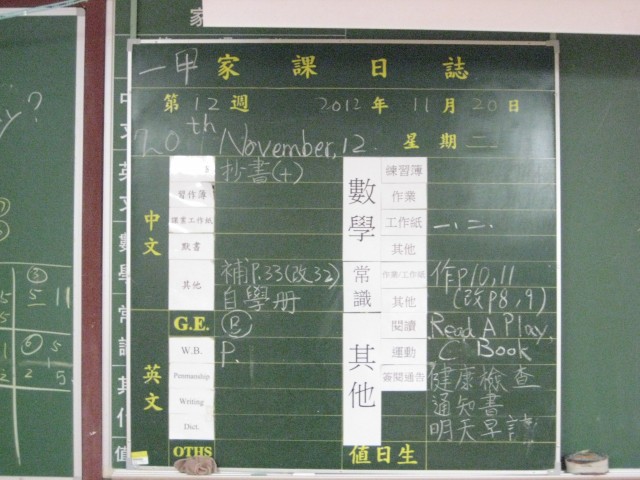 一甲 家課日誌
第 12 週 2012 年 11 月 20 日
20th November, 12. 星期 二
中文
抄書(十)
習作簿
課業工作紙
默書
其他 補P.33(改32)
自學冊
G.E. B
英文
W.B. P.
Penmanship
Writing
Dict.
OTHS
數學
練習簿
作業
工作紙 一、二、
其他
常識
作業/工作紙 作p10,11
其他 (改P8,9)
其他
閱讀 Read A Play,
運動 C. Book
簽閱通告 健康檢查
通知書
明天早讀
值日生